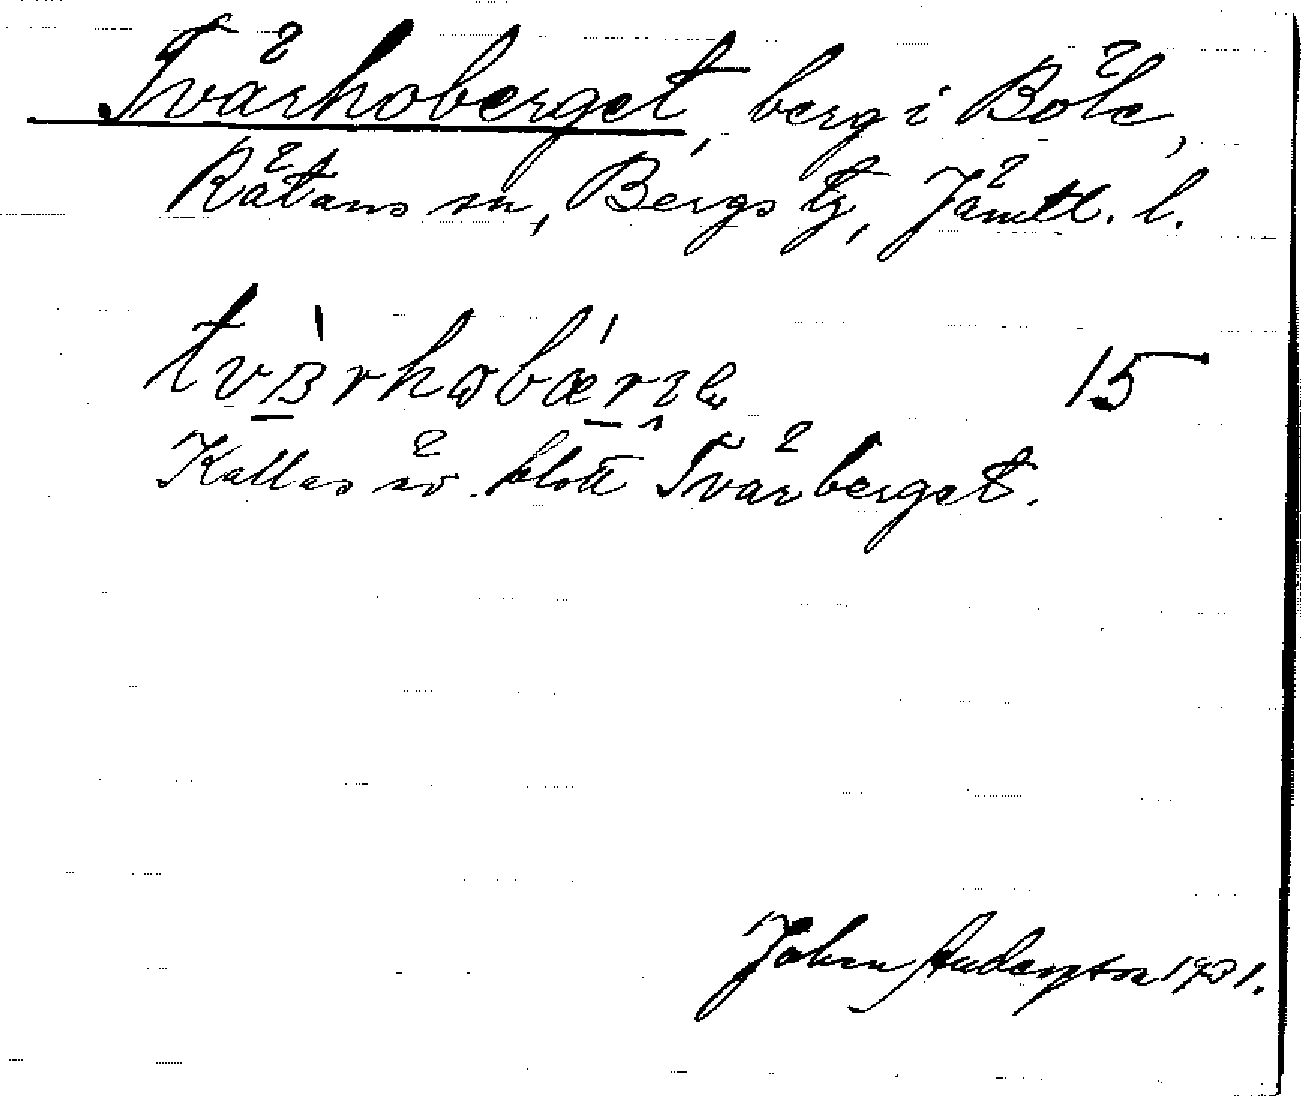 Tvärhoberget, berg i Böle,
Rätans sn, Bergs tg, Jämtl. l.
15
Kallas äv. blott Tvärberget.
John Andersson 1931.